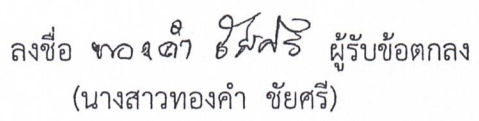 ลงชื่อ ทองคำ ชัยศรี ผู้รับข้อตกลง
(นางสาวทองคำ ชัยศรี)